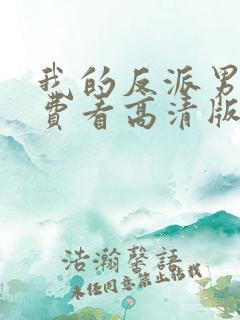 我的反派男
费看高清版
浩瀚馨語
未经同意禁止转载